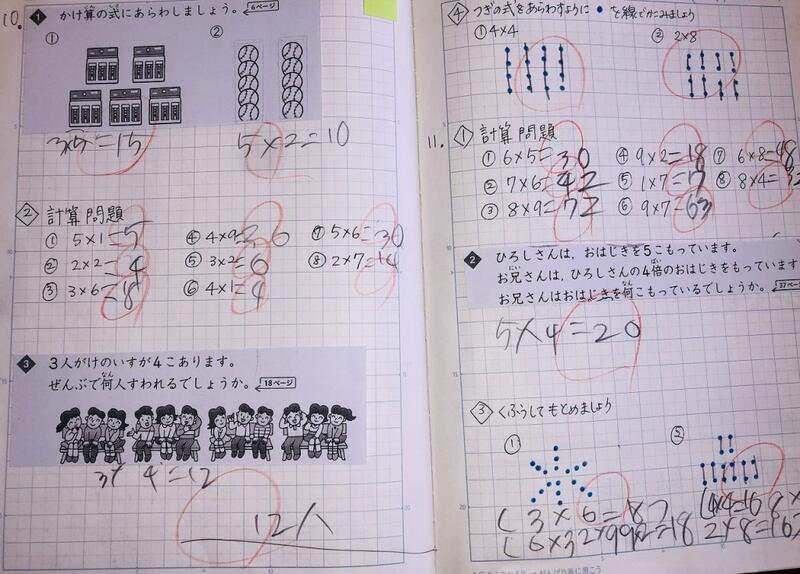 10.
1 かけ算の式にあらわしましょう。 6ページ
① ②
3×5=15 5×2=10
2 計算問題
① 5×1=5 ④ 4×9=36 ⑦ 5×6=30
② 2×2=4 ⑤ 3×2=6 ⑧ 2×7=14
③ 3×6=18 ⑥ 4×1=4
3 3人がけのいすが4こあります。
ぜんぶで何人すわれるでしょうか。 18ページ
なん
3× 4=12
12人
4 つぎの式をあらわすように ● を線でかこみましょう
① 4×4 ② 2×8
11.
1 計算問題
① 6×5=30 ④ 9×2=18 ⑦ 6×8=48
② 7×6=42 ⑤ 1×7=7 ⑧ 8×4=32
③ 8×9=72 ⑥ 9×7=63
2 ひろしさんは、おはじきを5こもっています。
にい ばい
お兄さんは、ひろしさんの4倍のおはじきをもっています
なん
お兄さんはおはじきを何こもっているでしょうか。 27ページ
5×4=20
3 くふうしてもとめましょう
① ②
(3×6= (4×4=16
(6×3 =18 2×8=16